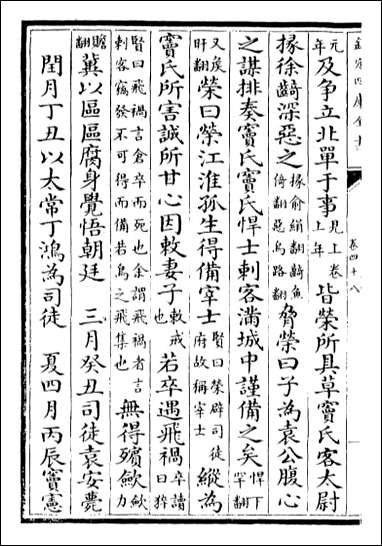 欽定四庫全書
卷四十八
元年及争立北單于事見上卷上年皆榮所具草竇氏客太尉
掾徐齮深惡之掾俞絹翻齮魚倚翻惡烏路翻脅榮曰子為袁公腹心
之謀排奏竇氏竇氏悍士刺客滿城中謹備之矣悍下罕翻
又侯旰翻榮曰榮江淮孤生得備宰士賢曰榮辟司徒府故稱宰士縱為
竇氏所害誠所甘心因敕妻子敕戒也若卒遇飛禍卒讀曰猝
賢曰飛禍言倉卒而死也余謂飛禍者言刺客竊發不可得而備若鳥之飛集也無得殯斂斂力
贍翻冀以區區腐身覺悟朝廷　三月癸丑司徒袁安薨
閏月丁丑以太常丁鴻為司徒　夏四月丙辰竇憲